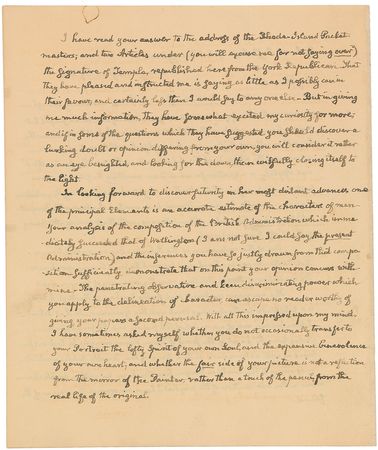 I have read your answer to the address of the Rhode-Island Packet
masters; and two Articles under (you will excuse me for not saying over)
the signature of Templa, republished here from the York Republican. That
they have pleased and instructed me is saying as little as I possibly can in
their favour, and certainly less than I would say to any one else. But in giving
me much information, they have somewhat excited my curiosity for more;
and if in some of the questions which they have suggested you should discover a
lurking doubt or opinion differing from your own, you will consider it rather
as an eye benighted, and looking for the dawn, than wilfully closing itself to
the light.
In looking forward to discover futurity in her most distant advances one
of the principal Elements is an accurate estimate of the characters of men
Your analysis of the composition of the British Administration which imme
diately succeeded that of Wellington (I am not sure I could say the present
Administration) and the inferences you have so justly drawn from that compo
sition sufficiently demonstrate that on this point your opinion concurs with
mine. The penetrating observation and keen discriminating power which
you apply to the delineation of character can escape no reader worthy of
giving your papers a second perusal. With all this impressed upon my mind,
I have sometimes asked myself whether you do not occasionally transfer to
your Portrait the lofty Spirit of your own Soul, and the expansive benevolence
of your own heart, and whether the fair side of your picture is not a reflection
from the mirror of the Painter, rather than a touch of the pencil from the
real life of the original.